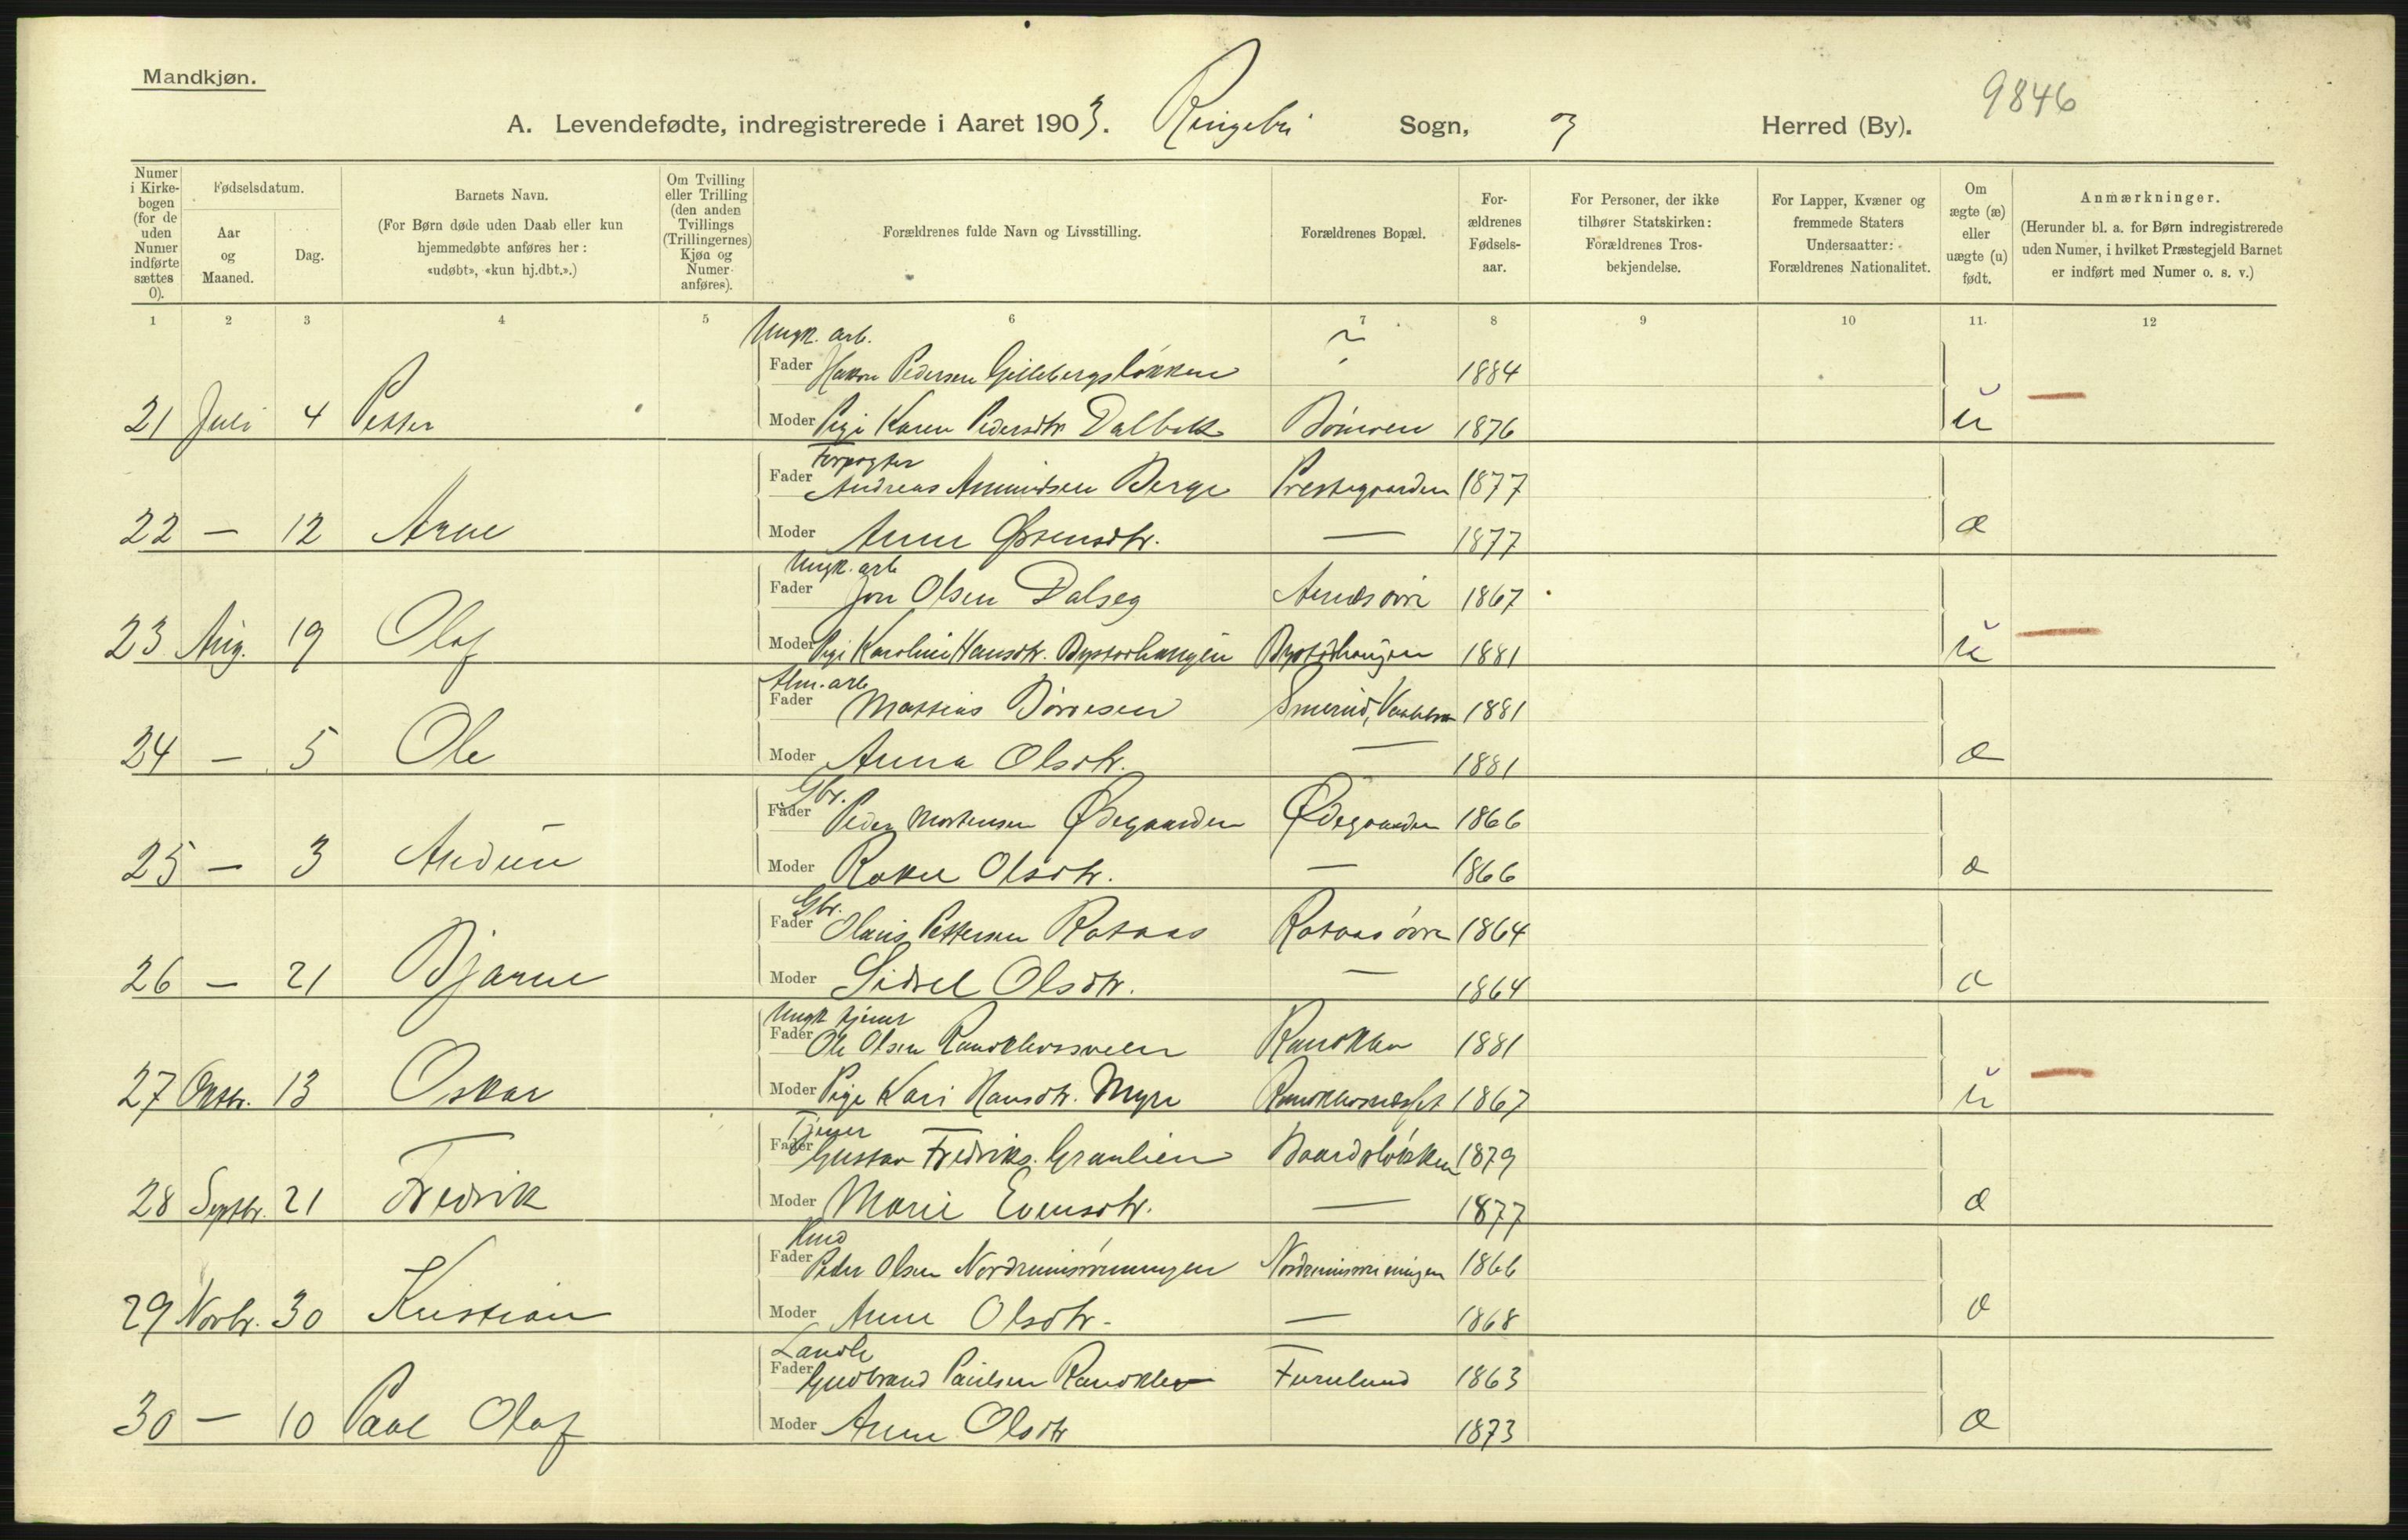 Mandkjøn.
9846
A. Levendefødte, indregistrerede i Aaret 1903. Ringebu Sogn, og Herred (By).
Numer i Kirkebogen (for de uden Numer indførte sættes 0).
Fødselsdatum.
Aar og Maaned.
Dag.
Barnets Navn.
(For Børn døde uden Daab eller kun hjemmedøbte anføres her: «udøbt», «kun hj.dbt.».)
Om Tvilling eller Trilling (den anden Tvillings (Trillingernes) Kjøn og Numer anføres).
Forældrenes fulde Navn og Livsstilling.
Forældrenes Bopæl.
Forældrenes Fødselsaar.
For Personer, der ikke tilhører Statskirken: Forældrenes Trosbekjendelse.
For Lapper, Kvæner og fremmede Staters Undersaatter: Forældrenes Nationalitet.
Om ægte (æ) eller uægte (u) født.
Anmærkninger.
(Herunder bl. a. for Børn indregistrerede uden Numer, i hvilket Præstegjeld Barnet er indført med Numer o. s. v.)
1 2 3 4 5 6 7 8 9 10 11. 12
Ungk. arb.
Fader Hakon Pedersen Gillebergsløkken ? 1884
21 Juli 4 Petter Moder Pige Karen Pedersdtr Dalbek 1876 u —
Forpagter
Fader Andreas Amundsen Berge Prestegaarden 1877
22 — 12 Arne Moder Anne Østensdtr. — 1877 æ
Ungk. arb
Fader Jon Olsen Dalseg 1867
23 Aug. 19 Olaf Moder Pige Karoline Hansdtr. Bystørhaugen Bystørhaugen 1881 u —
Alm. arb
Fader Mattias 1881
24 — 5 Ole Moder Anna Olsdtr. — 1881 æ
Gbr.
Fader Peder Mortensen Ødegaarden Ødegaarden 1866
25 — 3 Audun Moder Rakel Olsdtr. — 1866 æ
Gbr.
Fader Olaus Pettersen Rataas Rataas øvre 1864
26 — 21 Bjarne Moder Sidsel Olsdtr. — 1864 æ
Ungk tjener
Fader Ole Olsen Randklevsveen Randklev 1881
27 Oktbr. 13 Oskar Moder Pige Kari Hansdtr. Myre 1867 u —
Tjener
Fader Gustav Fredriks. Granlien Baardsløkken 1879
28 Septbr. 21 Fredrik Moder Marie Evensdtr. — 1877 æ
Fader Peder Olsen 1866
29 Novbr. 30 Kristian Moder Anne Olsdtr. — 1868 æ
Landh
Fader Gudbrand Paulsen Randklev Furulund 1863
30 — 10 Paul Olaf Moder Anne Olsdtr 1873 æ